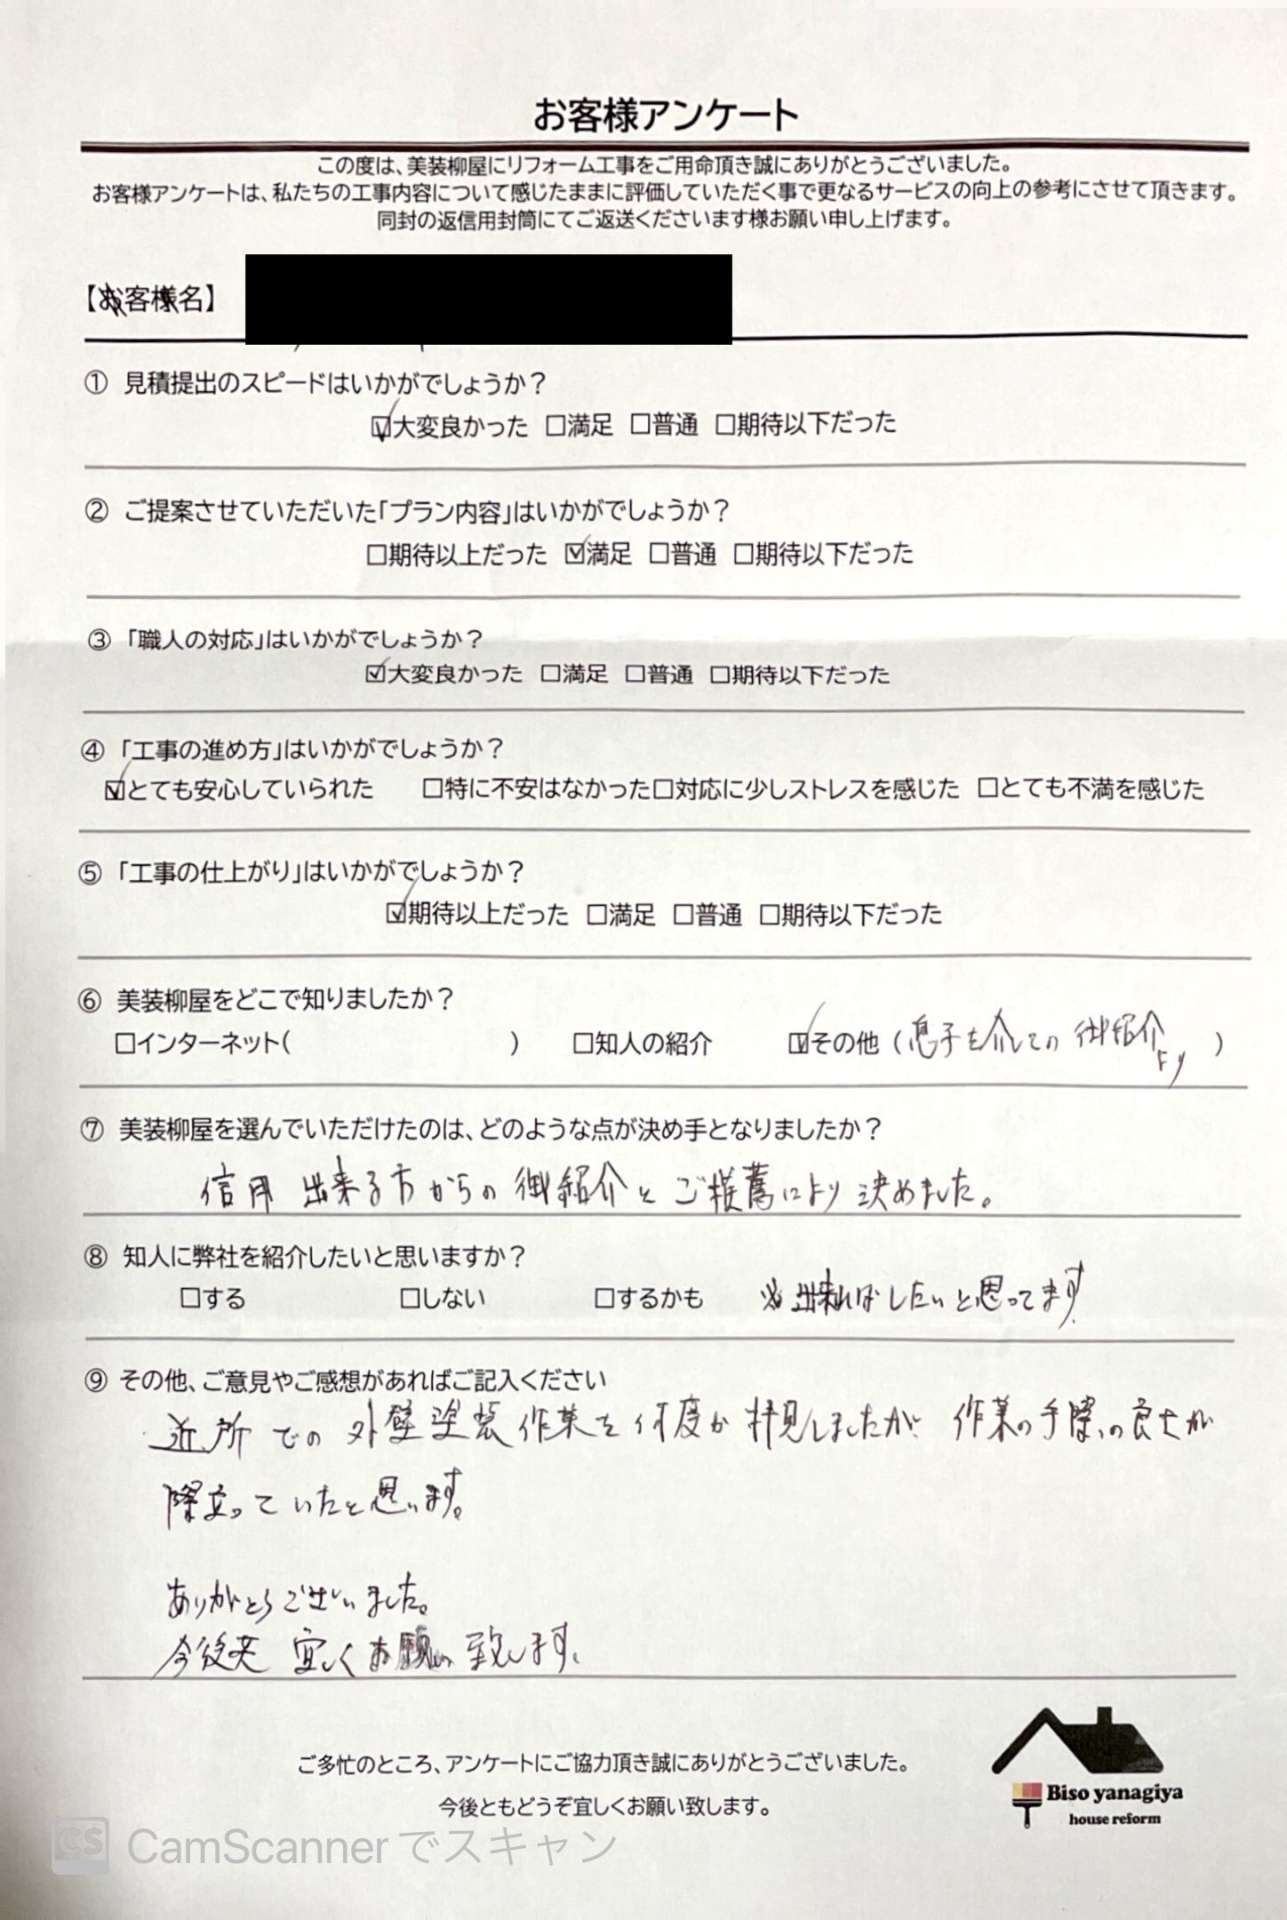 お客様アンケート
この度は、美装柳屋にリフォーム工事をご用命頂き誠にありがとうございました。
お客様アンケートは、私たちの工事内容について感じたままに評価していただく事で更なるサービスの向上の参考にさせて頂きます。
同封の返信用封筒にてご返送くださいます様お願い申し上げます。
【お客様名】
① 見積提出のスピードはいかがでしょうか？
☑大変良かった □満足 □普通 □期待以下だった
② ご提案させていただいた「プラン内容」はいかがでしょうか？
□期待以上だった ☑満足 □普通 □期待以下だった
③ 「職人の対応」はいかがでしょうか？
☑大変良かった □満足 □普通 □期待以下だった
④ 「工事の進め方」はいかがでしょうか？
☑とても安心していられた □特に不安はなかった□対応に少しストレスを感じた □とても不満を感じた
⑤ 「工事の仕上がり」はいかがでしょうか？
☑期待以上だった □満足 □普通 □期待以下だった
⑥ 美装柳屋をどこで知りましたか？
□インターネット( ) □知人の紹介 ☑その他 (息子を介しての御紹介より )
⑦ 美装柳屋を選んでいただけたのは、どのような点が決め手となりましたか？
信用出来る方からの御紹介とご推薦により決めました。
⑧ 知人に弊社を紹介したいと思いますか？
□する □しない □するかも ※出来ればしたいと思ってます
⑨ その他、ご意見やご感想があればご記入ください
近所での外壁塗装作業を何度か拝見しましたが 作業の手際の良さが
際立っていたと思います。
ありがとうございました。
今後共 宜しくお願い致します。
ご多忙のところ、アンケートにご協力頂き誠にありがとうございました。
今後ともどうぞ宜しくお願い致します。
Biso yanagiya
house reform
CS CamScannerでスキャン